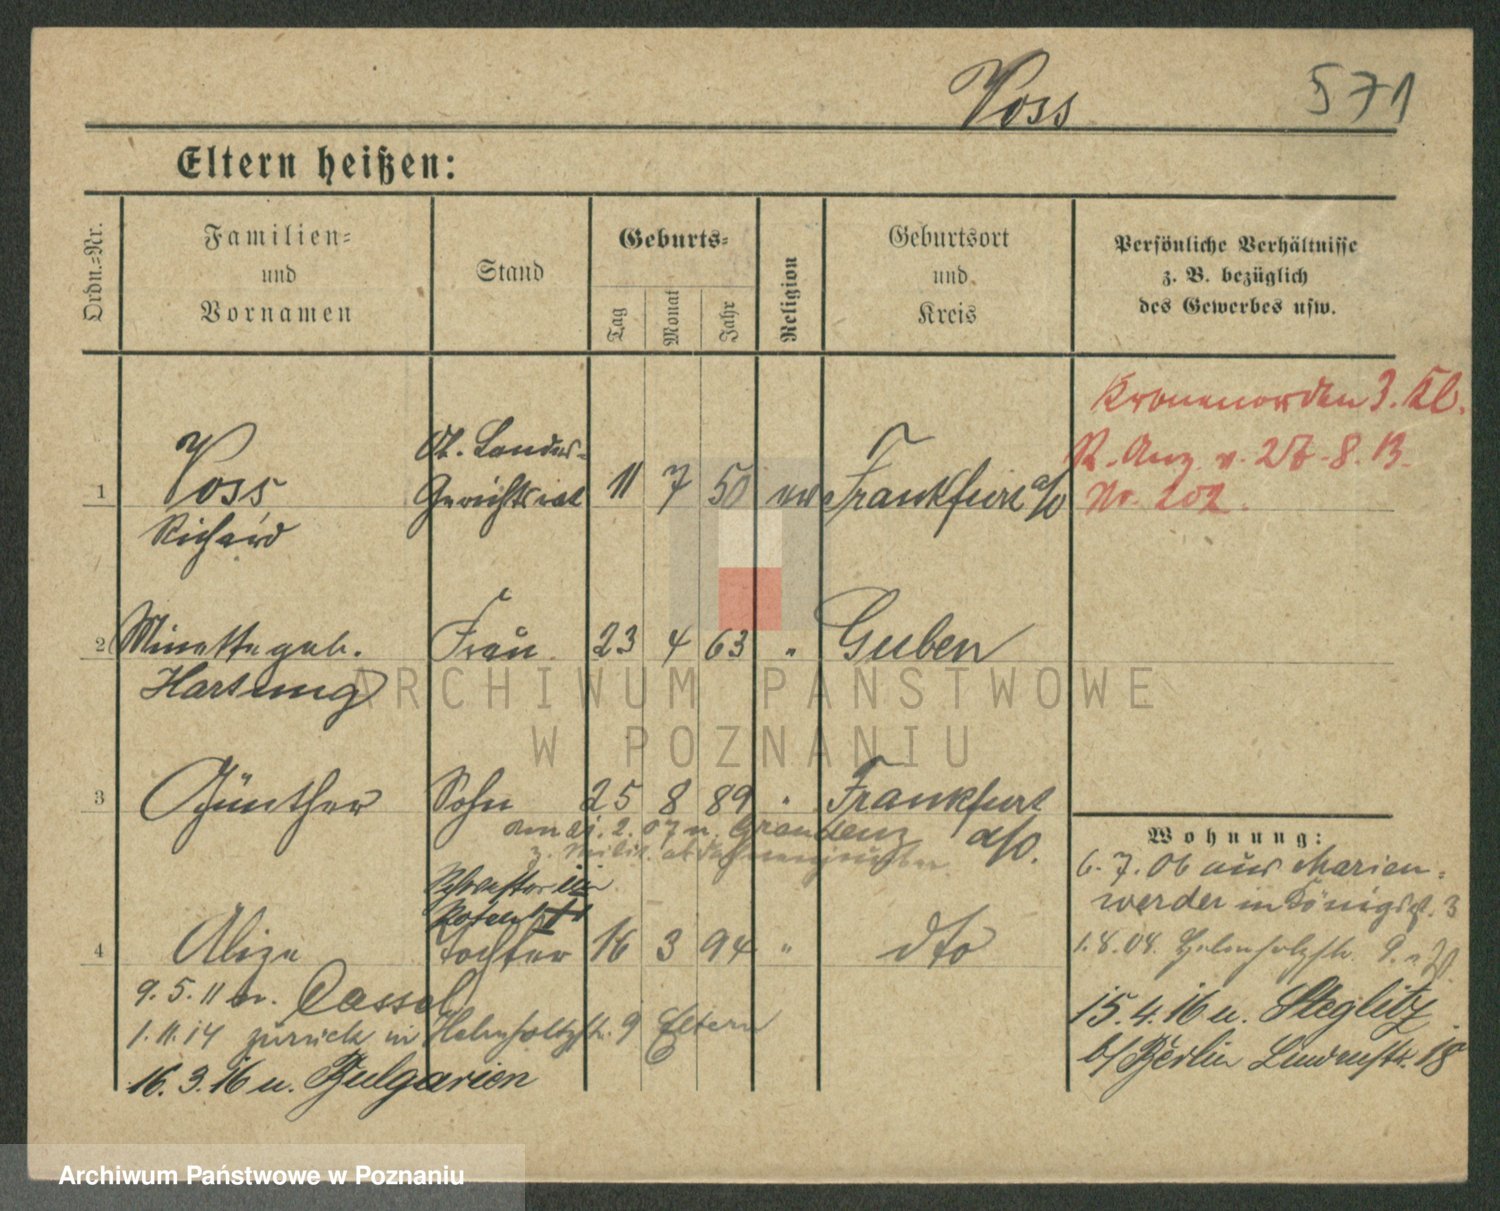 Voss 571
Eltern heißen:
Ordn.-Nr.
Familien-
und
Vornamen
Stand
Geburts-
Tag
Monat
Jahr
Religion
Geburtsort
und
Kreis
Persönliche Verhältnisse
z. B. bezüglich
des Gewerbes usw.
Kronenorden 3. Kl.
R. Anz. v. 27.8.13.
Nr. 202.
1 Voss Ob. Landes- Gerichtsrat 11 7 50 ev Frankfurt a/O
Richard
2 Minette geb. Frau 23 4 63 " Guben
Hartung
3 Günther Sohn 25 8 89 " Frankfurt
a/O.
2. 07 n. Graudenz
Schwester
4 Alize Tochter 16 3 94 " dto
9. 5. 11 n. Cassel
1. 11. 14 zurück in Helmholtzstr. 9 Eltern
16. 3. 16 n. Bulgarien
Wohnung:
6. 7. 06 aus Marien-
werder in Königst. 3
1. 8. 08. Helmholtzstr. 9.
15. 4. 16 n. Steglitz
b/ Berlin 18
ARCHIWUM PAŃSTWOWE
W POZNANIU
Archiwum Państwowe w Poznaniu